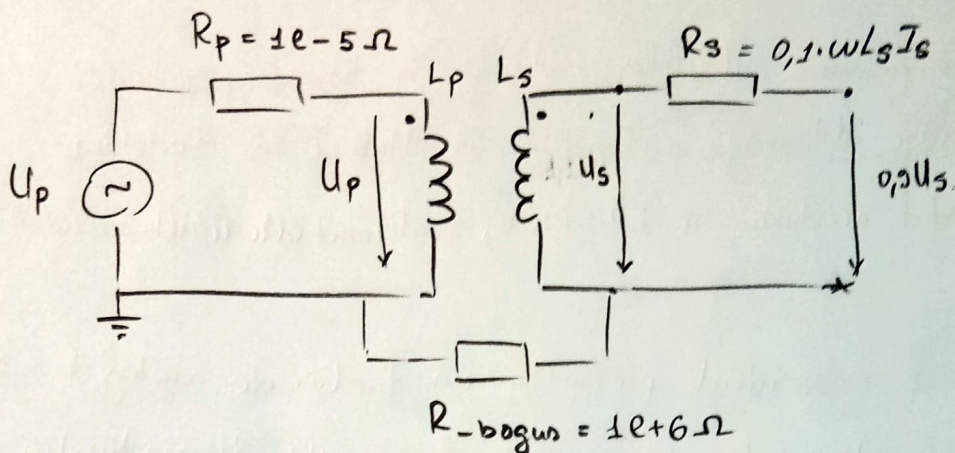 Rp = 1e-5Ω
Rs = 0,1·ωLsIs
Lp Ls
Up
Up
Us
0,9Us
R_bogus = 1e+6Ω